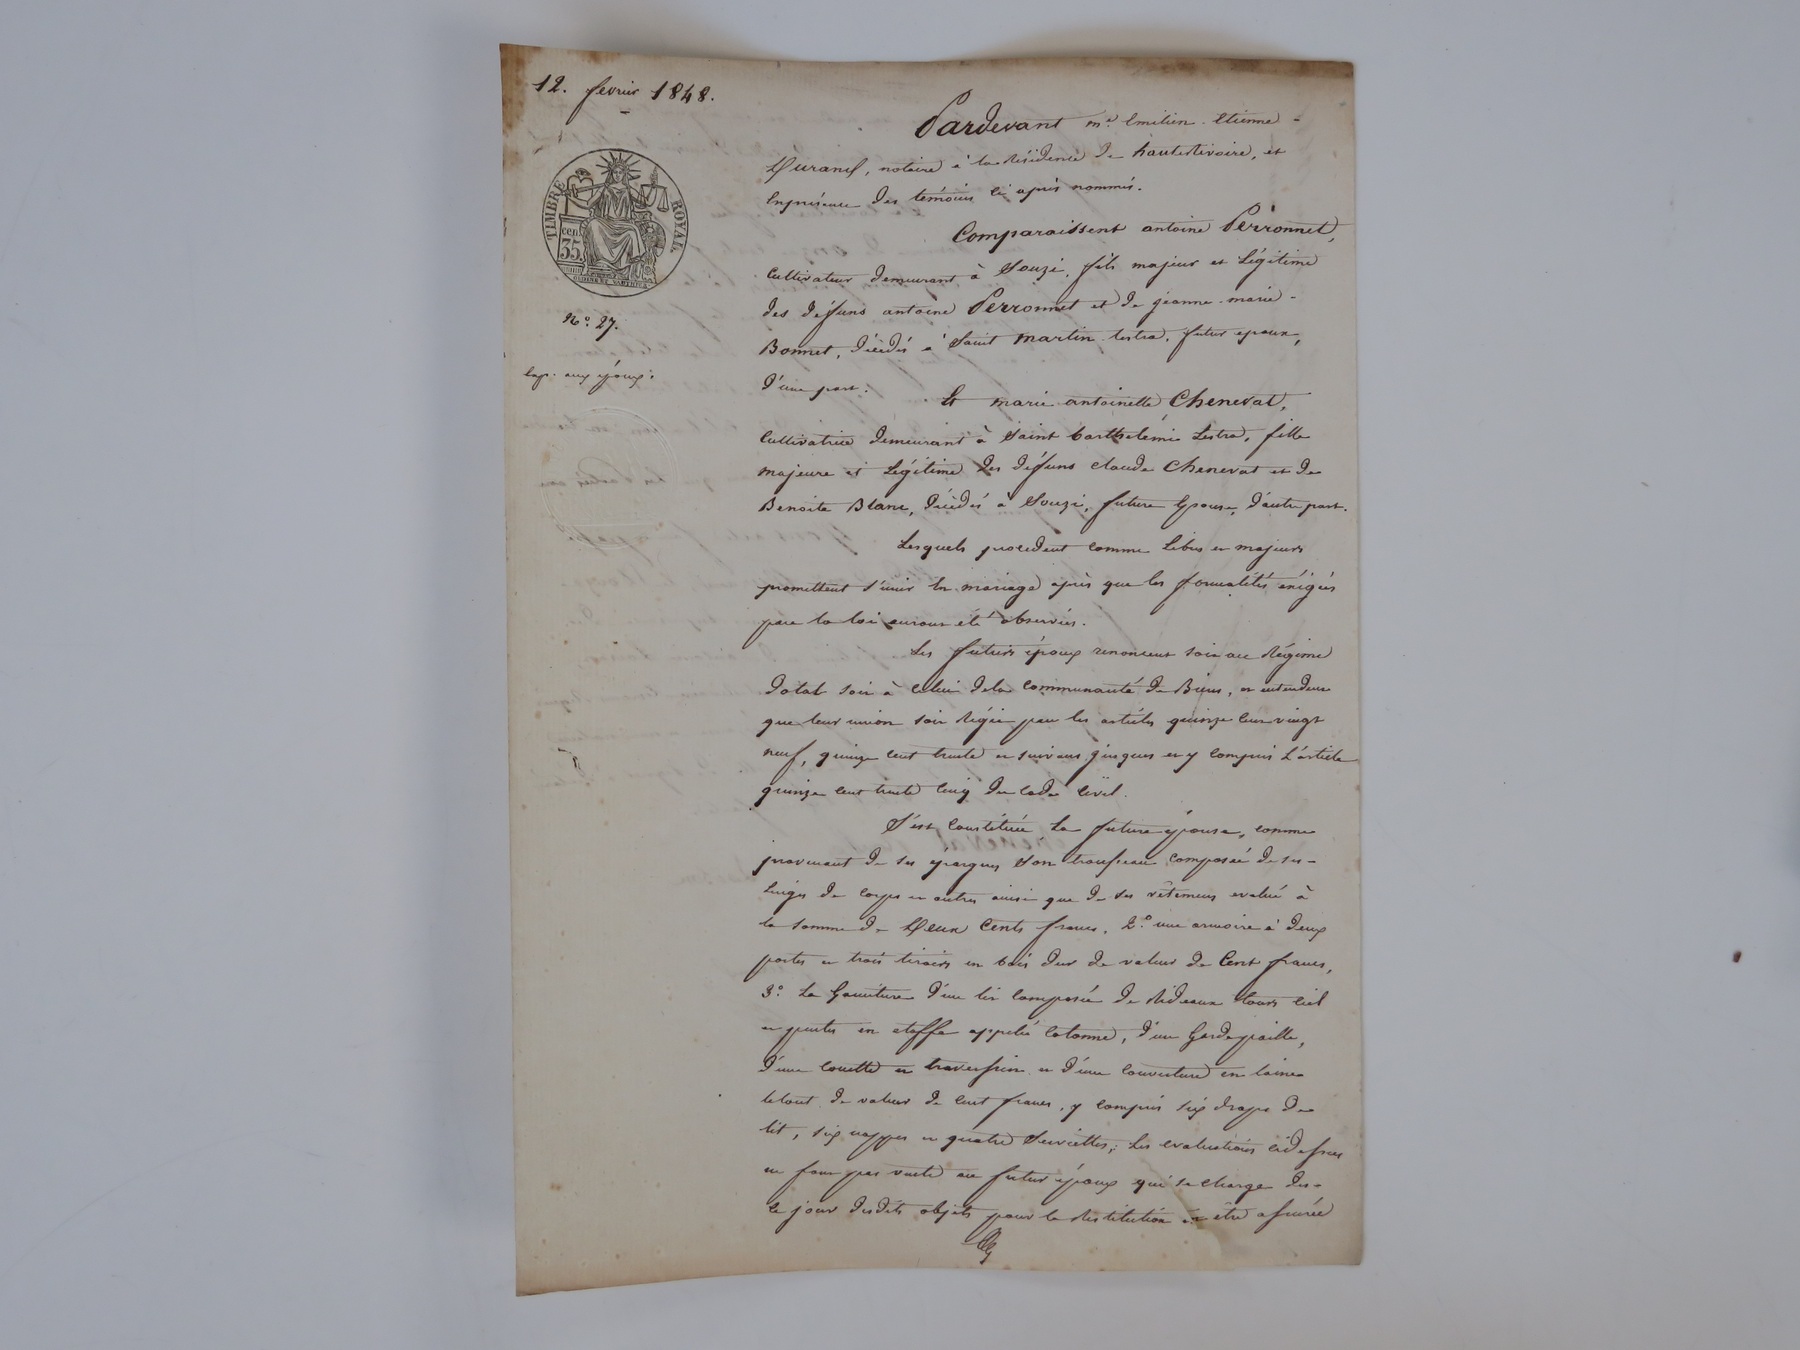 12. fevrier 1848.
TIMBRE ROYAL
cen.
35.
N.° 27.
Exp. aux époux.
Pardevant m.e Emilien Etienne -
Durand, notaire à la Résidence de hauterivoire, et
Enprésence des témoins ci après nommés.
Comparaissent antoine Perronnet,
Cultivateur demeurant à Souzi, fils majeur et Légitime
des défuns antoine Perronnet et de jeanne marie -
Bonnet, décédés à Saint martin lestra, futur epoux,
d'une part.
Et marie antoinette Chenevat,
Cultivatrice demeurant à Saint barthelémi Lestra, fille
majeure et Légitime des défuns claude Chenevat et de
Benoite Blanc, décédés à Souzi, future Epouse, d'autre part.
Lesquels procedent comme Libres et majeurs
promettent s'unir En mariage après que les formalités éxigées
par la loi auront été observées.
Les futurs époux renoncent soit au Régime
dotal soit à Celui dela Communauté de Biens, et entendent
que leur union soit Régie par les articles quinze cent vingt
neuf, quinze cent trente et suivans jusques et y compris L'article
quinze cent trente cinq du Code Civil.
S'est Constituée La future épouse, comme
provenant de ses épargnes Son trousseau composée de ses -
Linges de corps et autres ainsi que de ses vêtemens evalué à
la somme de Deux Cents francs, 2.° une armoire à deux
portes et trois tiroirs en bois dur de valeur de Cent francs,
3.° La Garniture d'un lit Composée de Rideaux tours ciel
et pentes en etoffe appelée Cotonne, d'un Gardepaille,
d'une Couette et traversin et d'une Couverture en laine
letout de valeur de Cent francs, y compris six draps de
lit, six nappes et quatre Serviettes; Les evaluations cidessus
ne font pas vente au futur époux qui se charge dès -
ce jour desdits objets pour la Restitution en être assurée